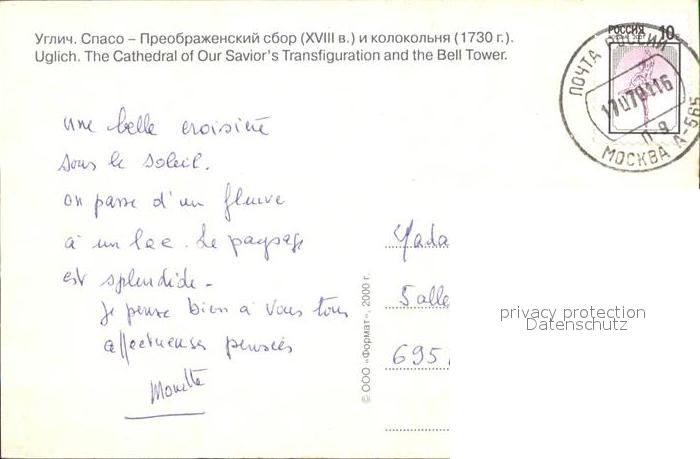 Углич. Спасо – Преображенский сбор (XVIII в.) и колокольня (1730 г.).
Uglich. The Cathedral of Our Savior's Transfiguration and the Bell Tower.
РОССИЯ 10
ПОЧТА РОССИИ
МОСКВА А-565
une belle croisière
sous le soleil.
on passe d'un fleuve
à un lac. Le paysage
est splendide -
je pense bien à vous tous
affectueuses pensées
Monette
5 alle
695
© ООО «Формат», 2000 г.
privacy protection
Datenschutz